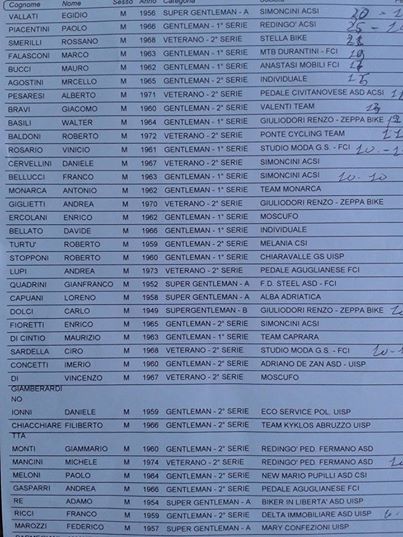 Cognome Nome Sesso Anno Categoria
VALLATI EGIDIO M 1956 SUPER GENTLEMAN - A SIMONCINI ACSI
PIACENTINI PAOLO M 1966 GENTLEMAN - 1° SERIE REDINGO' ACSI
SMERILLI ROSSANO M 1968 VETERANO - 2° SERIE STELLA BIKE
FALASCONI MARCO M 1963 GENTLEMAN - 1° SERIE MTB DURANTINI - FCI
BUCCI MAURO M 1962 GENTLEMAN - 1° SERIE ANASTASI MOBILI FCI
AGOSTINI MRCELLO M 1965 GENTLEMAN - 2° SERIE INDIVIDUALE
PESARESI ALBERTO M 1971 VETERANO - 2° SERIE PEDALE CIVITANOVESE ASD ACSI
BRAVI GIACOMO M 1960 GENTLEMAN - 2° SERIE VALENTI TEAM
BASILI WALTER M 1964 GENTLEMAN - 1° SERIE GIULIODORI RENZO - ZEPPA BIKE
BALDONI ROBERTO M 1972 VETERANO - 2° SERIE PONTE CYCLING TEAM
ROSARIO VINICIO M 1961 GENTLEMAN - 1° SERIE STUDIO MODA G.S. - FCI
CERVELLINI DANIELE M 1967 VETERANO - 2° SERIE SIMONCINI ACSI
BELLUCCI FRANCO M 1963 GENTLEMAN - 1° SERIE SIMONCINI ACSI 10-10
MONARCA ANTONIO M 1962 GENTLEMAN - 1° SERIE TEAM MONARCA
GIGLIETTI ANDREA M 1970 VETERANO - 2° SERIE GIULIODORI RENZO - ZEPPA BIKE
ERCOLANI ENRICO M 1962 GENTLEMAN - 1° SERIE MOSCUFO
BELLATO DAVIDE M 1966 GENTLEMAN - 1° SERIE INDIVIDUALE
TURTU' ROBERTO M 1959 GENTLEMAN - 2° SERIE MELANIA CSI
STOPPONI ROBERTO M 1960 GENTLEMAN - 1° SERIE CHIARAVALLE GS UISP
LUPI ANDREA M 1973 VETERANO - 2° SERIE PEDALE AGUGLIANESE FCI
QUADRINI GIANFRANCO M 1952 SUPER GENTLEMAN - A F.D. STEEL ASD - FCI
CAPUANI LORENO M 1958 SUPER GENTLEMAN - A ALBA ADRIATICA
DOLCI CARLO M 1949 SUPERGENTLEMAN - B GIULIODORI RENZO - ZEPPA BIKE
FIORETTI ENRICO M 1965 GENTLEMAN - 2° SERIE SIMONCINI ACSI
DI CINTIO MAURIZIO M 1963 GENTLEMAN - 1° SERIE TEAM CAPRARA
SARDELLA CIRO M 1968 VETERANO - 2° SERIE STUDIO MODA G.S. - FCI
CONCETTI IMERIO M 1960 GENTLEMAN - 2° SERIE ADRIANO DE ZAN ASD - UISP
DI VINCENZO M 1967 VETERANO - 2° SERIE MOSCUFO
GIAMBERARDI
NO
IONNI DANIELE M 1959 GENTLEMAN - 2° SERIE ECO SERVICE POL. UISP
CHIACCHIARE FILIBERTO M 1966 GENTLEMAN - 2° SERIE TEAM KYKLOS ABRUZZO UISP
TTA
MONTI GIAMMARIO M 1960 GENTLEMAN - 2° SERIE REDINGO' PED. FERMANO ASD
MANCINI MICHELE M 1974 VETERANO - 2° SERIE REDINGO' PED. FERMANO ASD
MELONI PAOLO M 1964 GENTLEMAN - 2° SERIE NEW MARIO PUPILLI ASD CSI
GASPARRI ANDREA M 1966 GENTLEMAN - 2° SERIE PEDALE AGUGLIANESE FCI
RE ADAMO M 1954 SUPER GENTLEMAN - A BIKER IN LIBERTA' ASD UISP
RICCI FRANCO M 1959 GENTLEMAN - 2° SERIE DELTA IMMOBILIARE ASD UISP
MAROZZI FEDERICO M 1957 SUPER GENTLEMAN - A MARY CONFEZIONI UISP